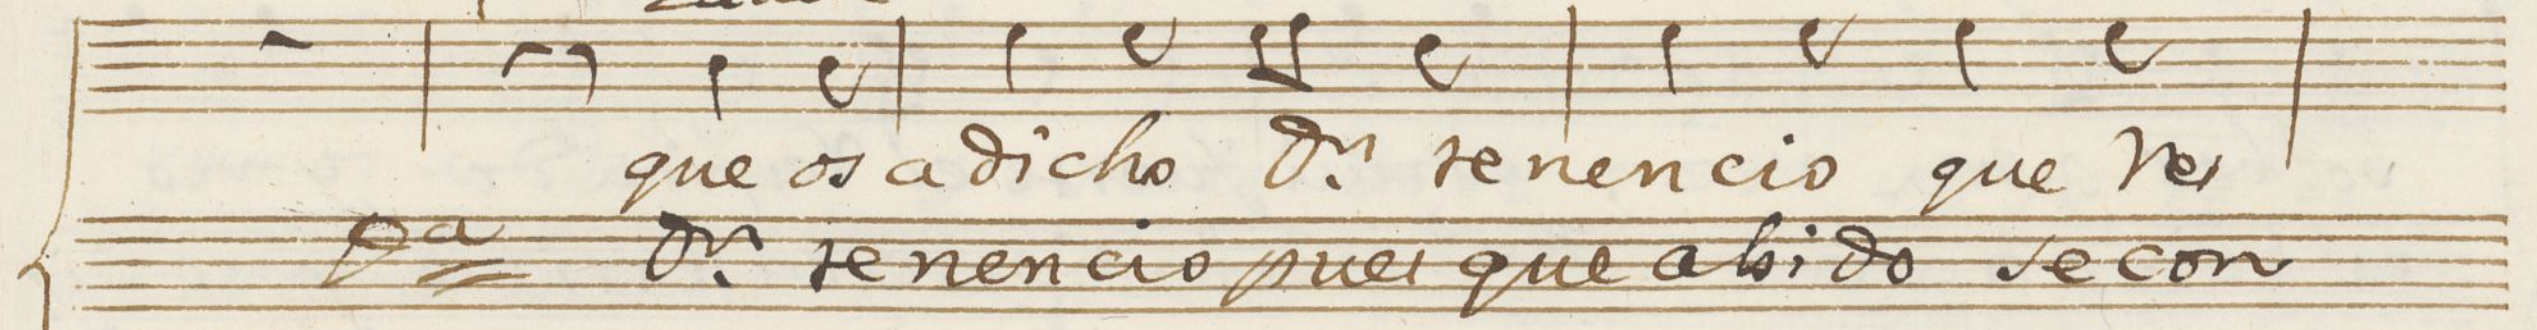 que os a dicho Dn. tenencio que res
Pa Dn. tenencio pues que abido se con